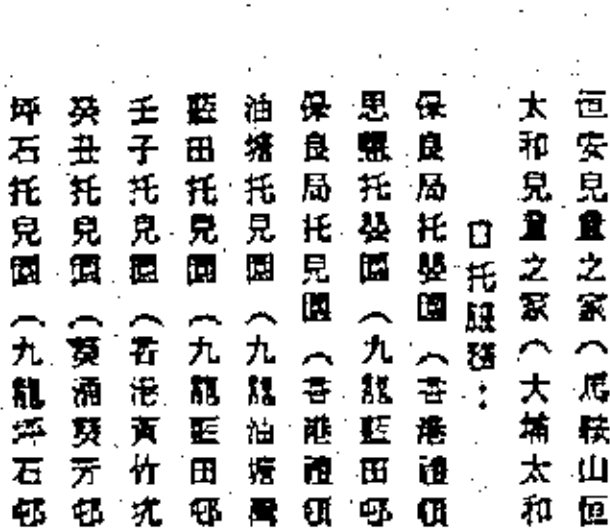 恒安兒童之家（馬鞍山恒
太和兒童之家（大埔太和
日托服務：
保良局托嬰園（香港禮頓
思 托嬰園（九龍藍田邨
保良局托兒園（香港禮頓
油塘托兒園（九龍油塘灣
藍田托兒園（九龍藍田邨
壬子托兒園（香港黃竹坑
癸丑托兒園（葵涌葵芳邨
坪石托兒園（九龍坪石邨